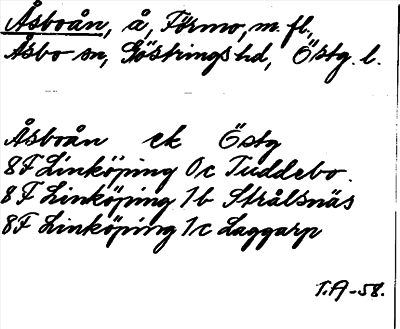 Åsboån, å, Förmo, m. fl.,
Åsbo sn, Göstrings hd, Östg. l.
Åsboån ek Östg
8F Linköping 0c Tuddebo.
8F Linköping 1b Strålsnäs
8F Linköping 1c Laggarp
T.A-58.